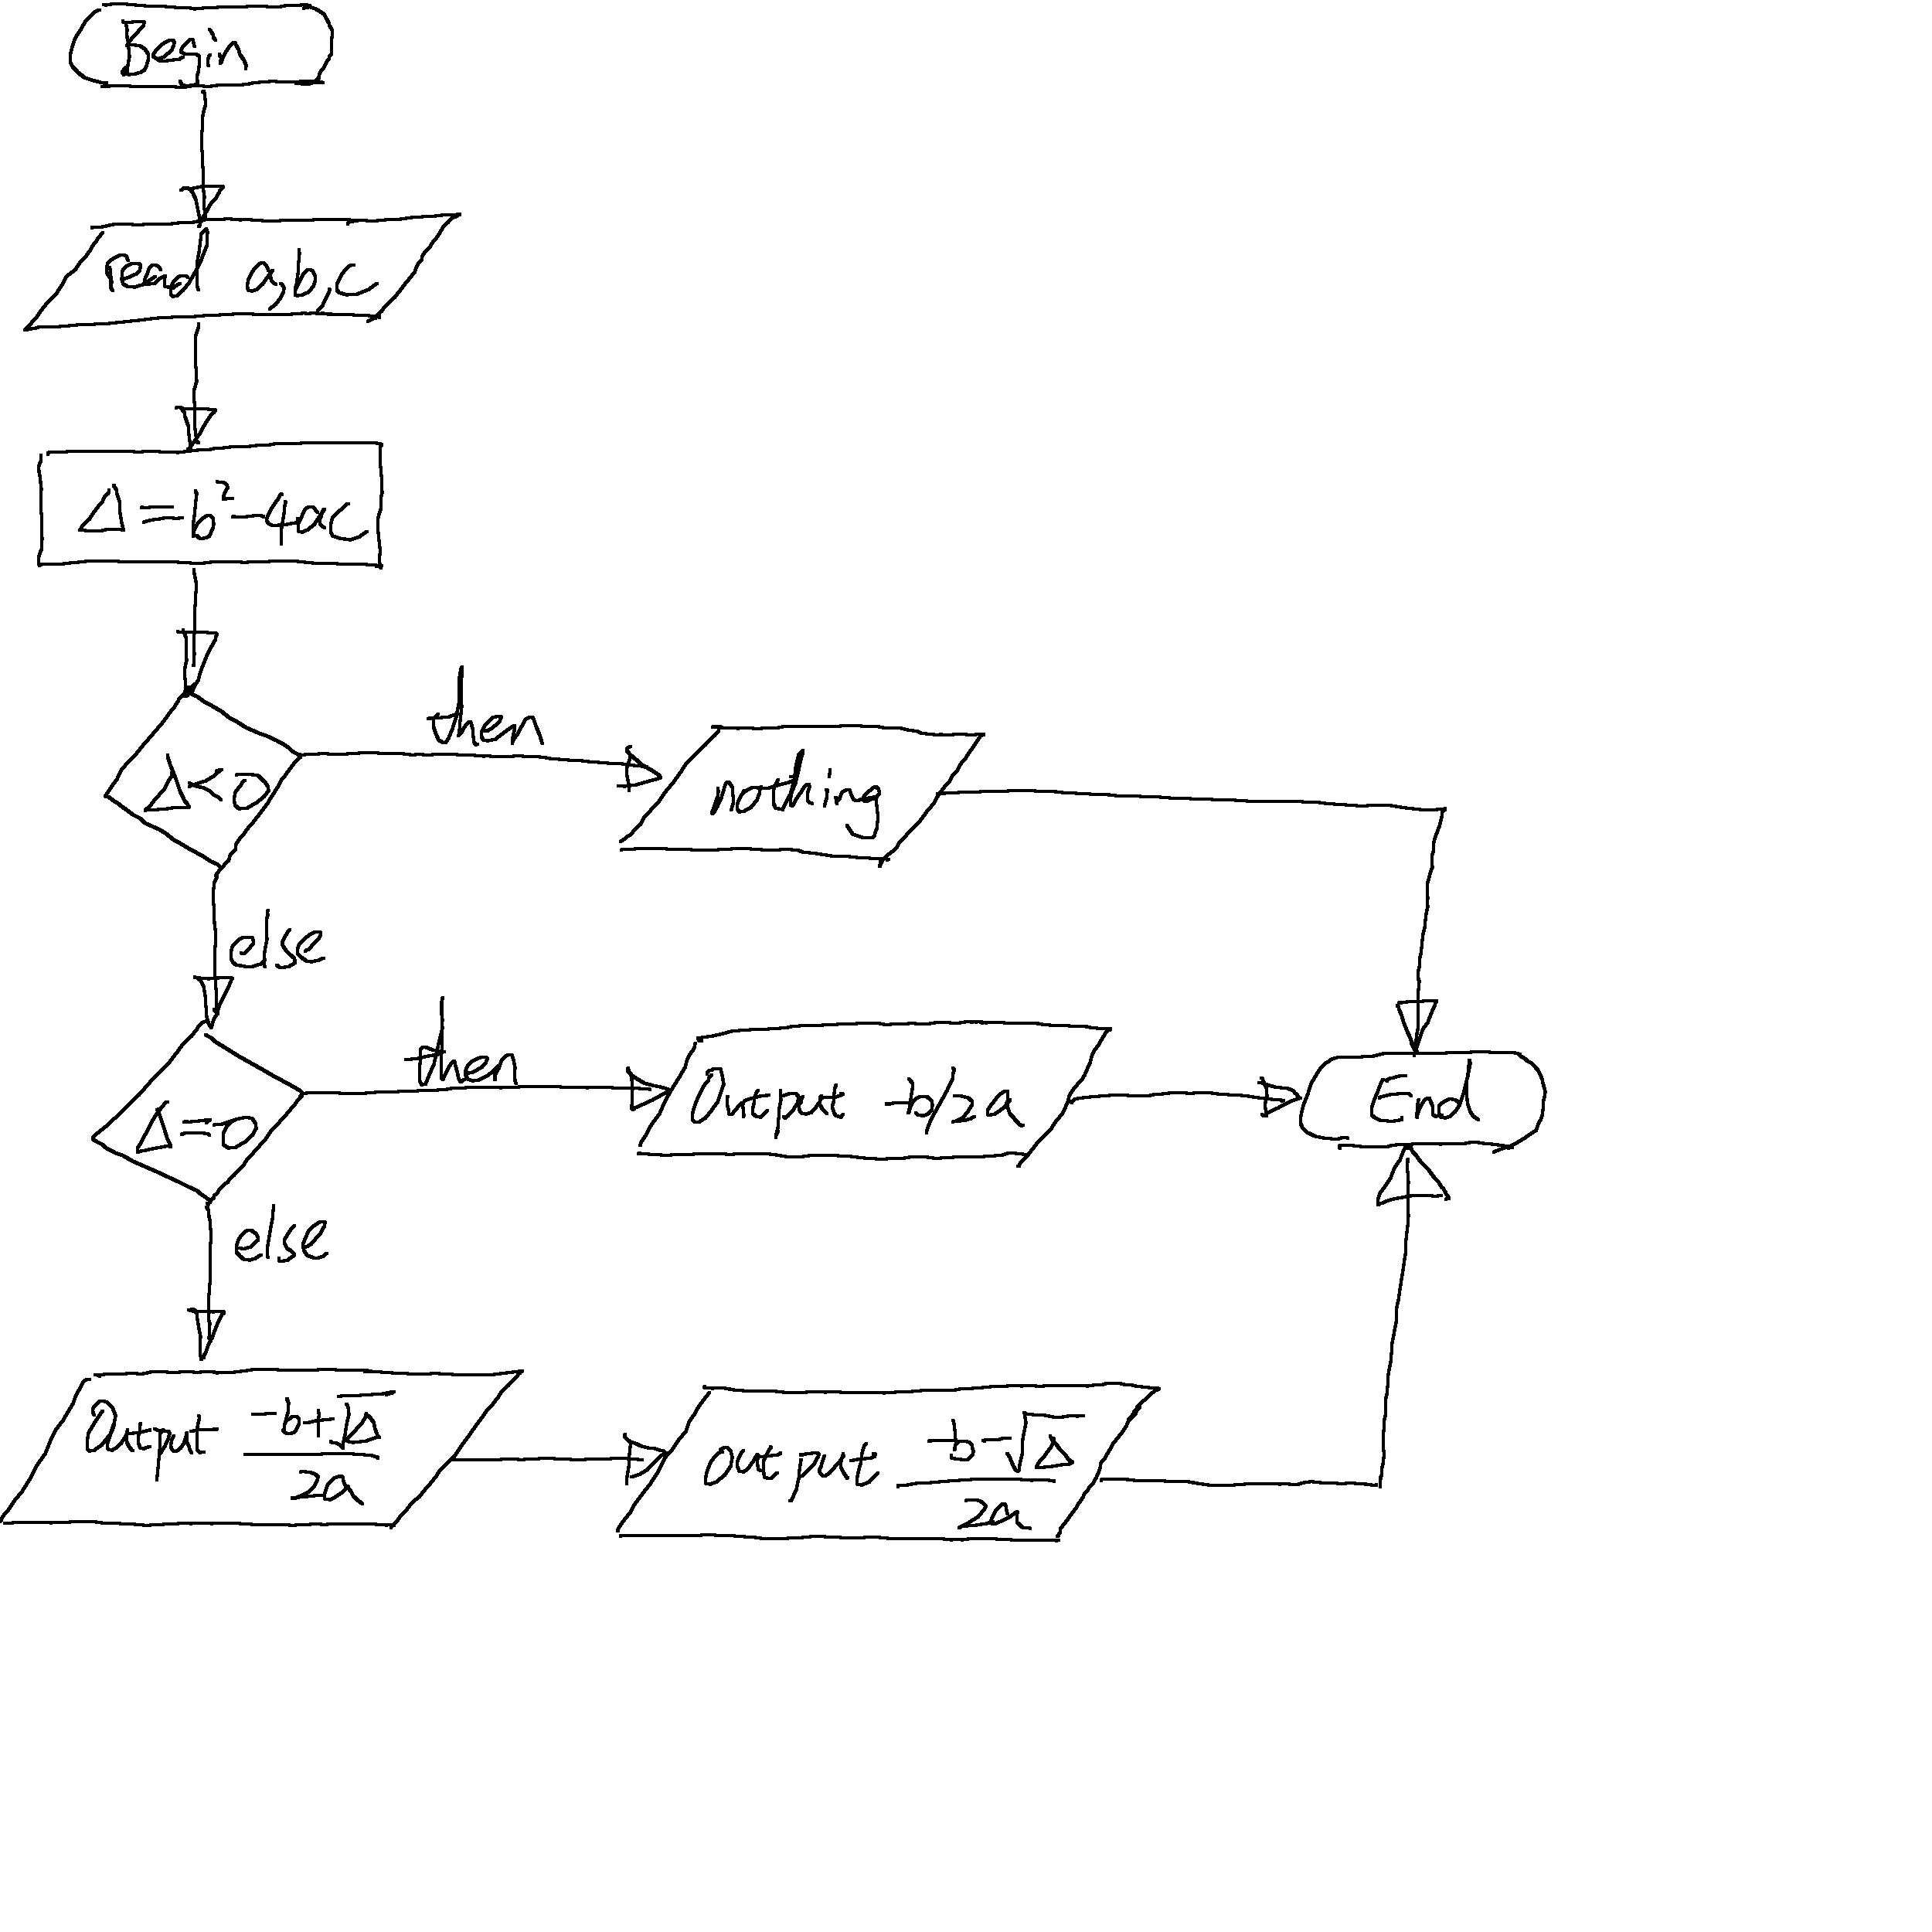 Begin
read a,b,c
Δ=b²-4ac
Δ<0
then
nothing
else
Δ=0
then
Output -b/2a
End
else
Output (-b+√Δ)/2a
output (-b-√Δ)/2a